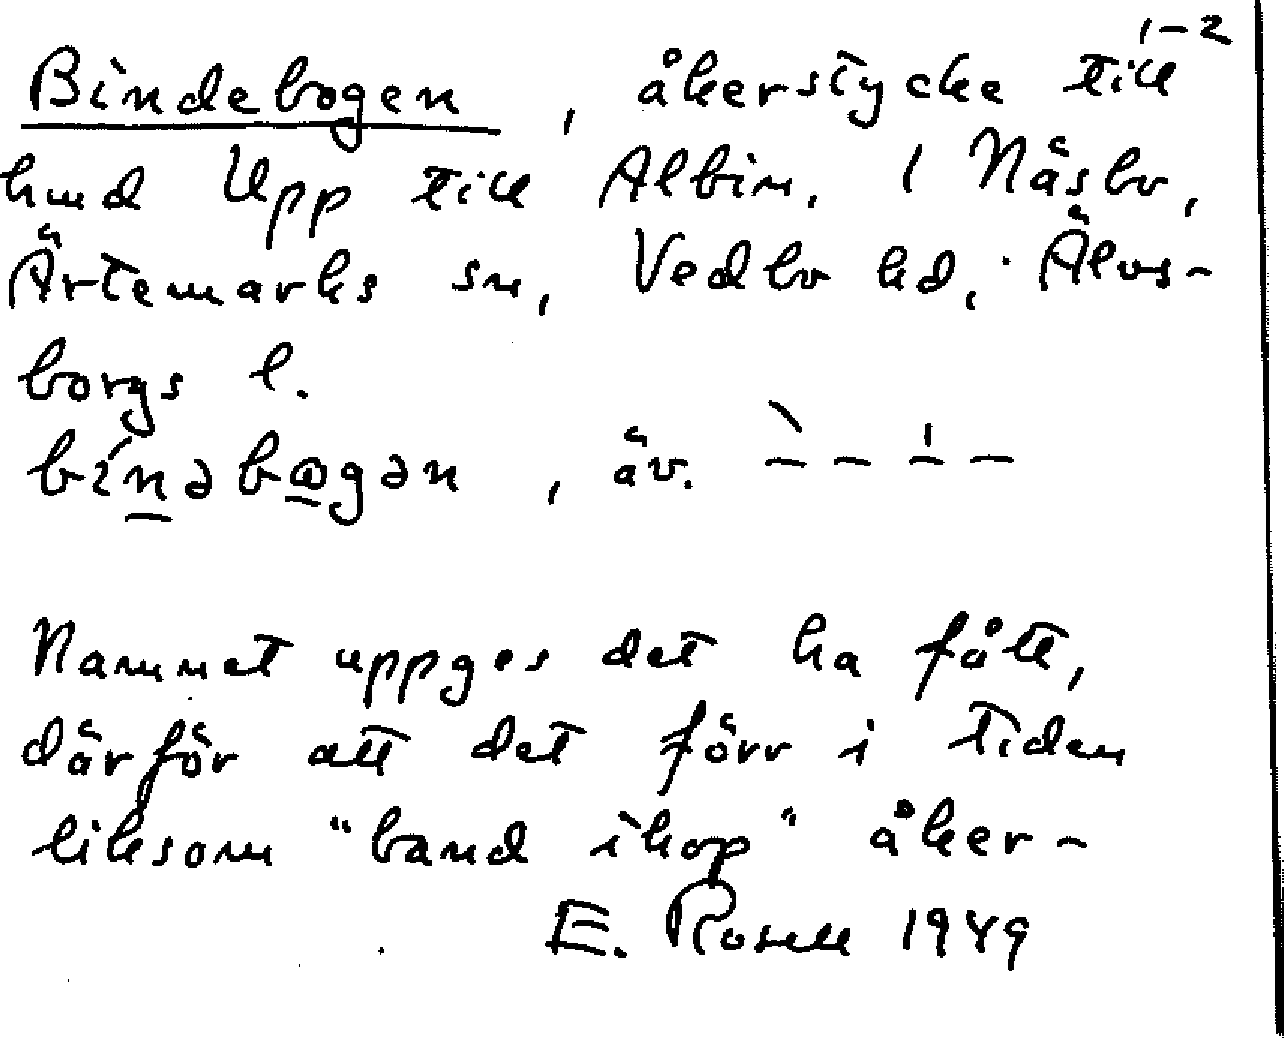 1-2
Bindebogen, åkerstycke till
hmd Upp till Albin. 1 Näsbo,
Ärtemarks sn, Vedbo hd, Älvs-
borgs l.
bínəbøgən, äv.
Namnet uppges det ha fått,
därför att det förr i tiden
liksom "band ihop" åker-
E. Rosell 1949